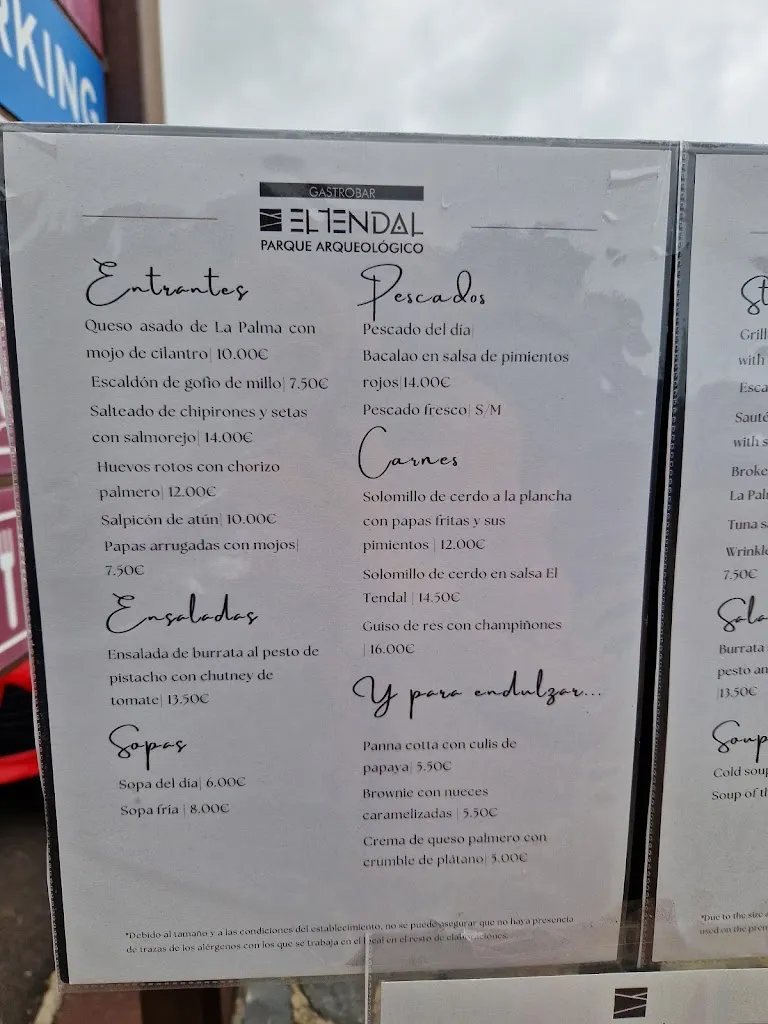 RKING
GASTROBAR
ELTENDAL
PARQUE ARQUEOLÓGICO
Entrantes
Queso asado de La Palma con
mojo de cilantro| 10.00€
Escaldón de gofio de millo| 7.50€
Salteado de chipirones y setas
con salmorejo| 14.00€
Huevos rotos con chorizo
palmero| 12.00€
Salpicón de atún| 10.00€
Papas arrugadas con mojos|
7.50€
Ensaladas
Ensalada de burrata al pesto de
pistacho con chutney de
tomate| 13.50€
Sopas
Sopa del día| 6.00€
Sopa fría | 8.00€
Pescados
Pescado del día|
Bacalao en salsa de pimientos
rojos|14.00€
Pescado fresco| S/M
Carnes
Solomillo de cerdo a la plancha
con papas fritas y sus
pimientos | 12.00€
Solomillo de cerdo en salsa El
Tendal | 14.50€
Guiso de res con champiñones
| 16.00€
Y para endulzar...
Panna cotta con culis de
papaya| 5.50€
Brownie con nueces
caramelizadas | 5.50€
Crema de queso palmero con
crumble de plátano| 5.00€
*Debido al tamaño y a las condiciones del establecimiento, no se puede asegurar que no haya presencia
de trazas de los alérgenos con los que se trabaja en el local en el resto de elaboraciones.
St
Grill
with
Esca
Sauté
with s
Broke
La Pal
Tuna s
Wrinkl
7.50€
Sala
Burrata
pesto an
|13.50€
Soup
Cold soup
Soup of th
*Due to the size
used on the prem